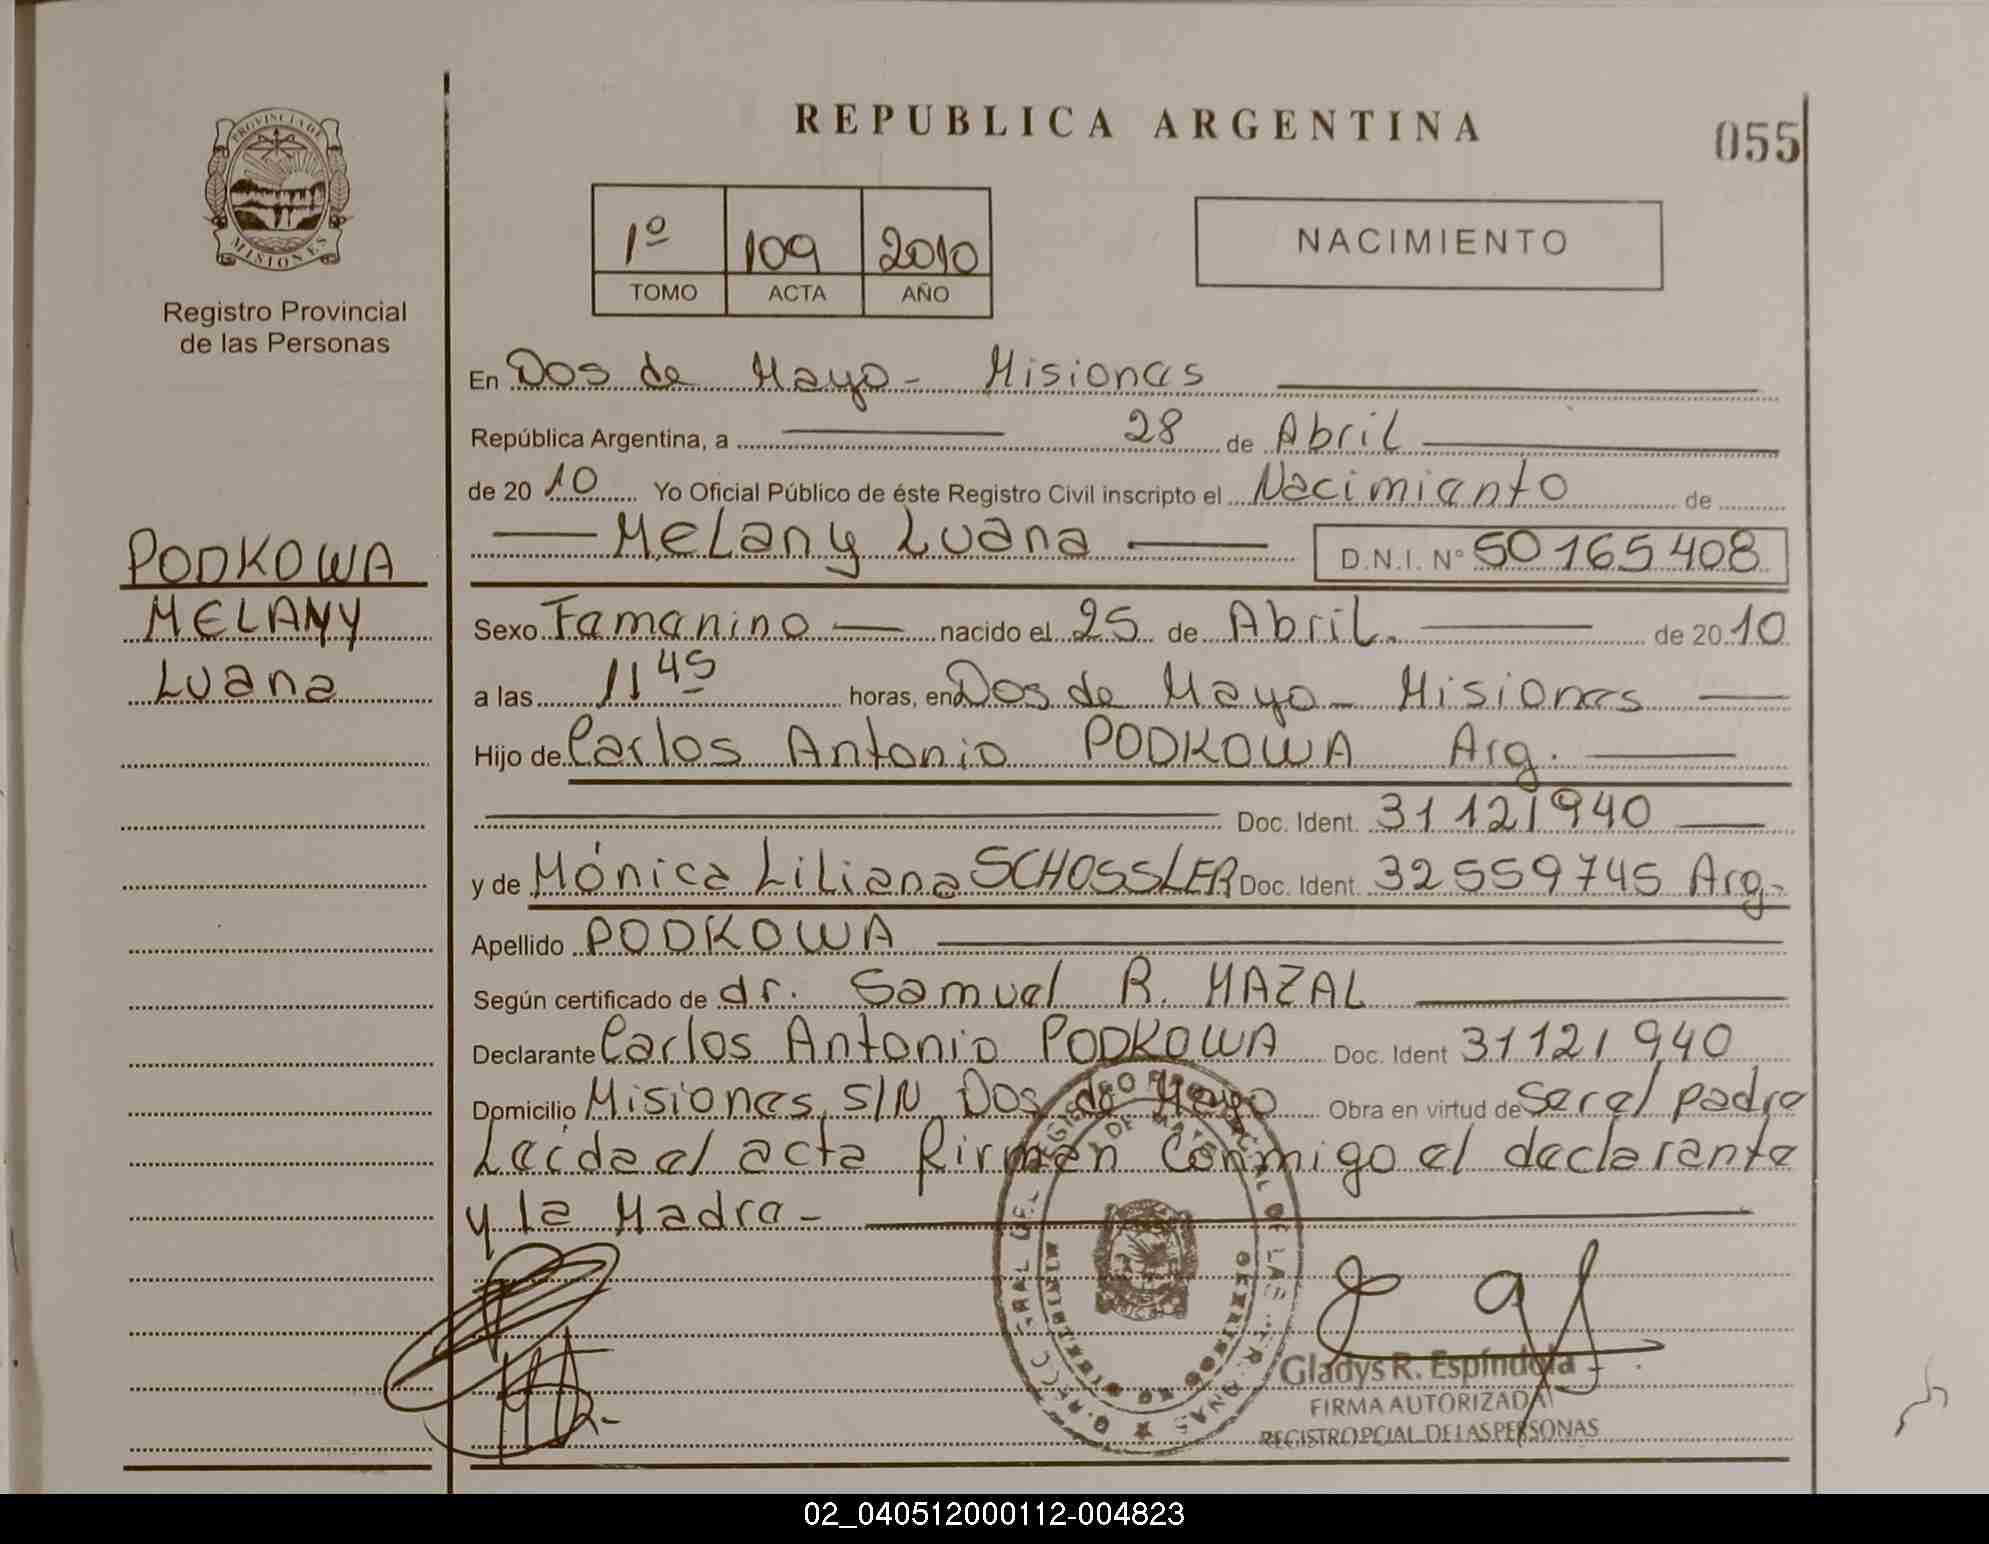 REPUBLICA ARGENTINA
055
PROVINCIA DE
MISIONES
Registro Provincial
de las Personas
1º 109 2010
TOMO ACTA AÑO
NACIMIENTO
En Dos de Mayo - Misiones
República Argentina, a 28 de Abril
de 2010 Yo Oficial Público de éste Registro Civil inscripto el Nacimiento de
Melany Luana D.N.I. Nº 50165408
PODKOWA
MELANY
Luana
Sexo Femenino nacido el 25 de Abril. de 2010
a las 11 45 horas, en Dos de Mayo - Misiones
Hijo de Carlos Antonio PODKOWA Arg.
Doc. Ident. 31121940
y de Mónica Liliana SCHOSSLER Doc. Ident. 32559745 Arg.
Apellido PODKOWA
Según certificado de dr. Samuel R. MAZAL
Declarante Carlos Antonio PODKOWA Doc. Ident 31121940
Domicilio Misiones, S/N Dos de Mayo Obra en virtud de ser el padre
Leida el acta firman conmigo el declarante
y la Madre -
Gladys R. Espíndola
FIRMA AUTORIZADA
REGISTRO PCIAL. DE LAS PERSONAS
02_040512000112-004823